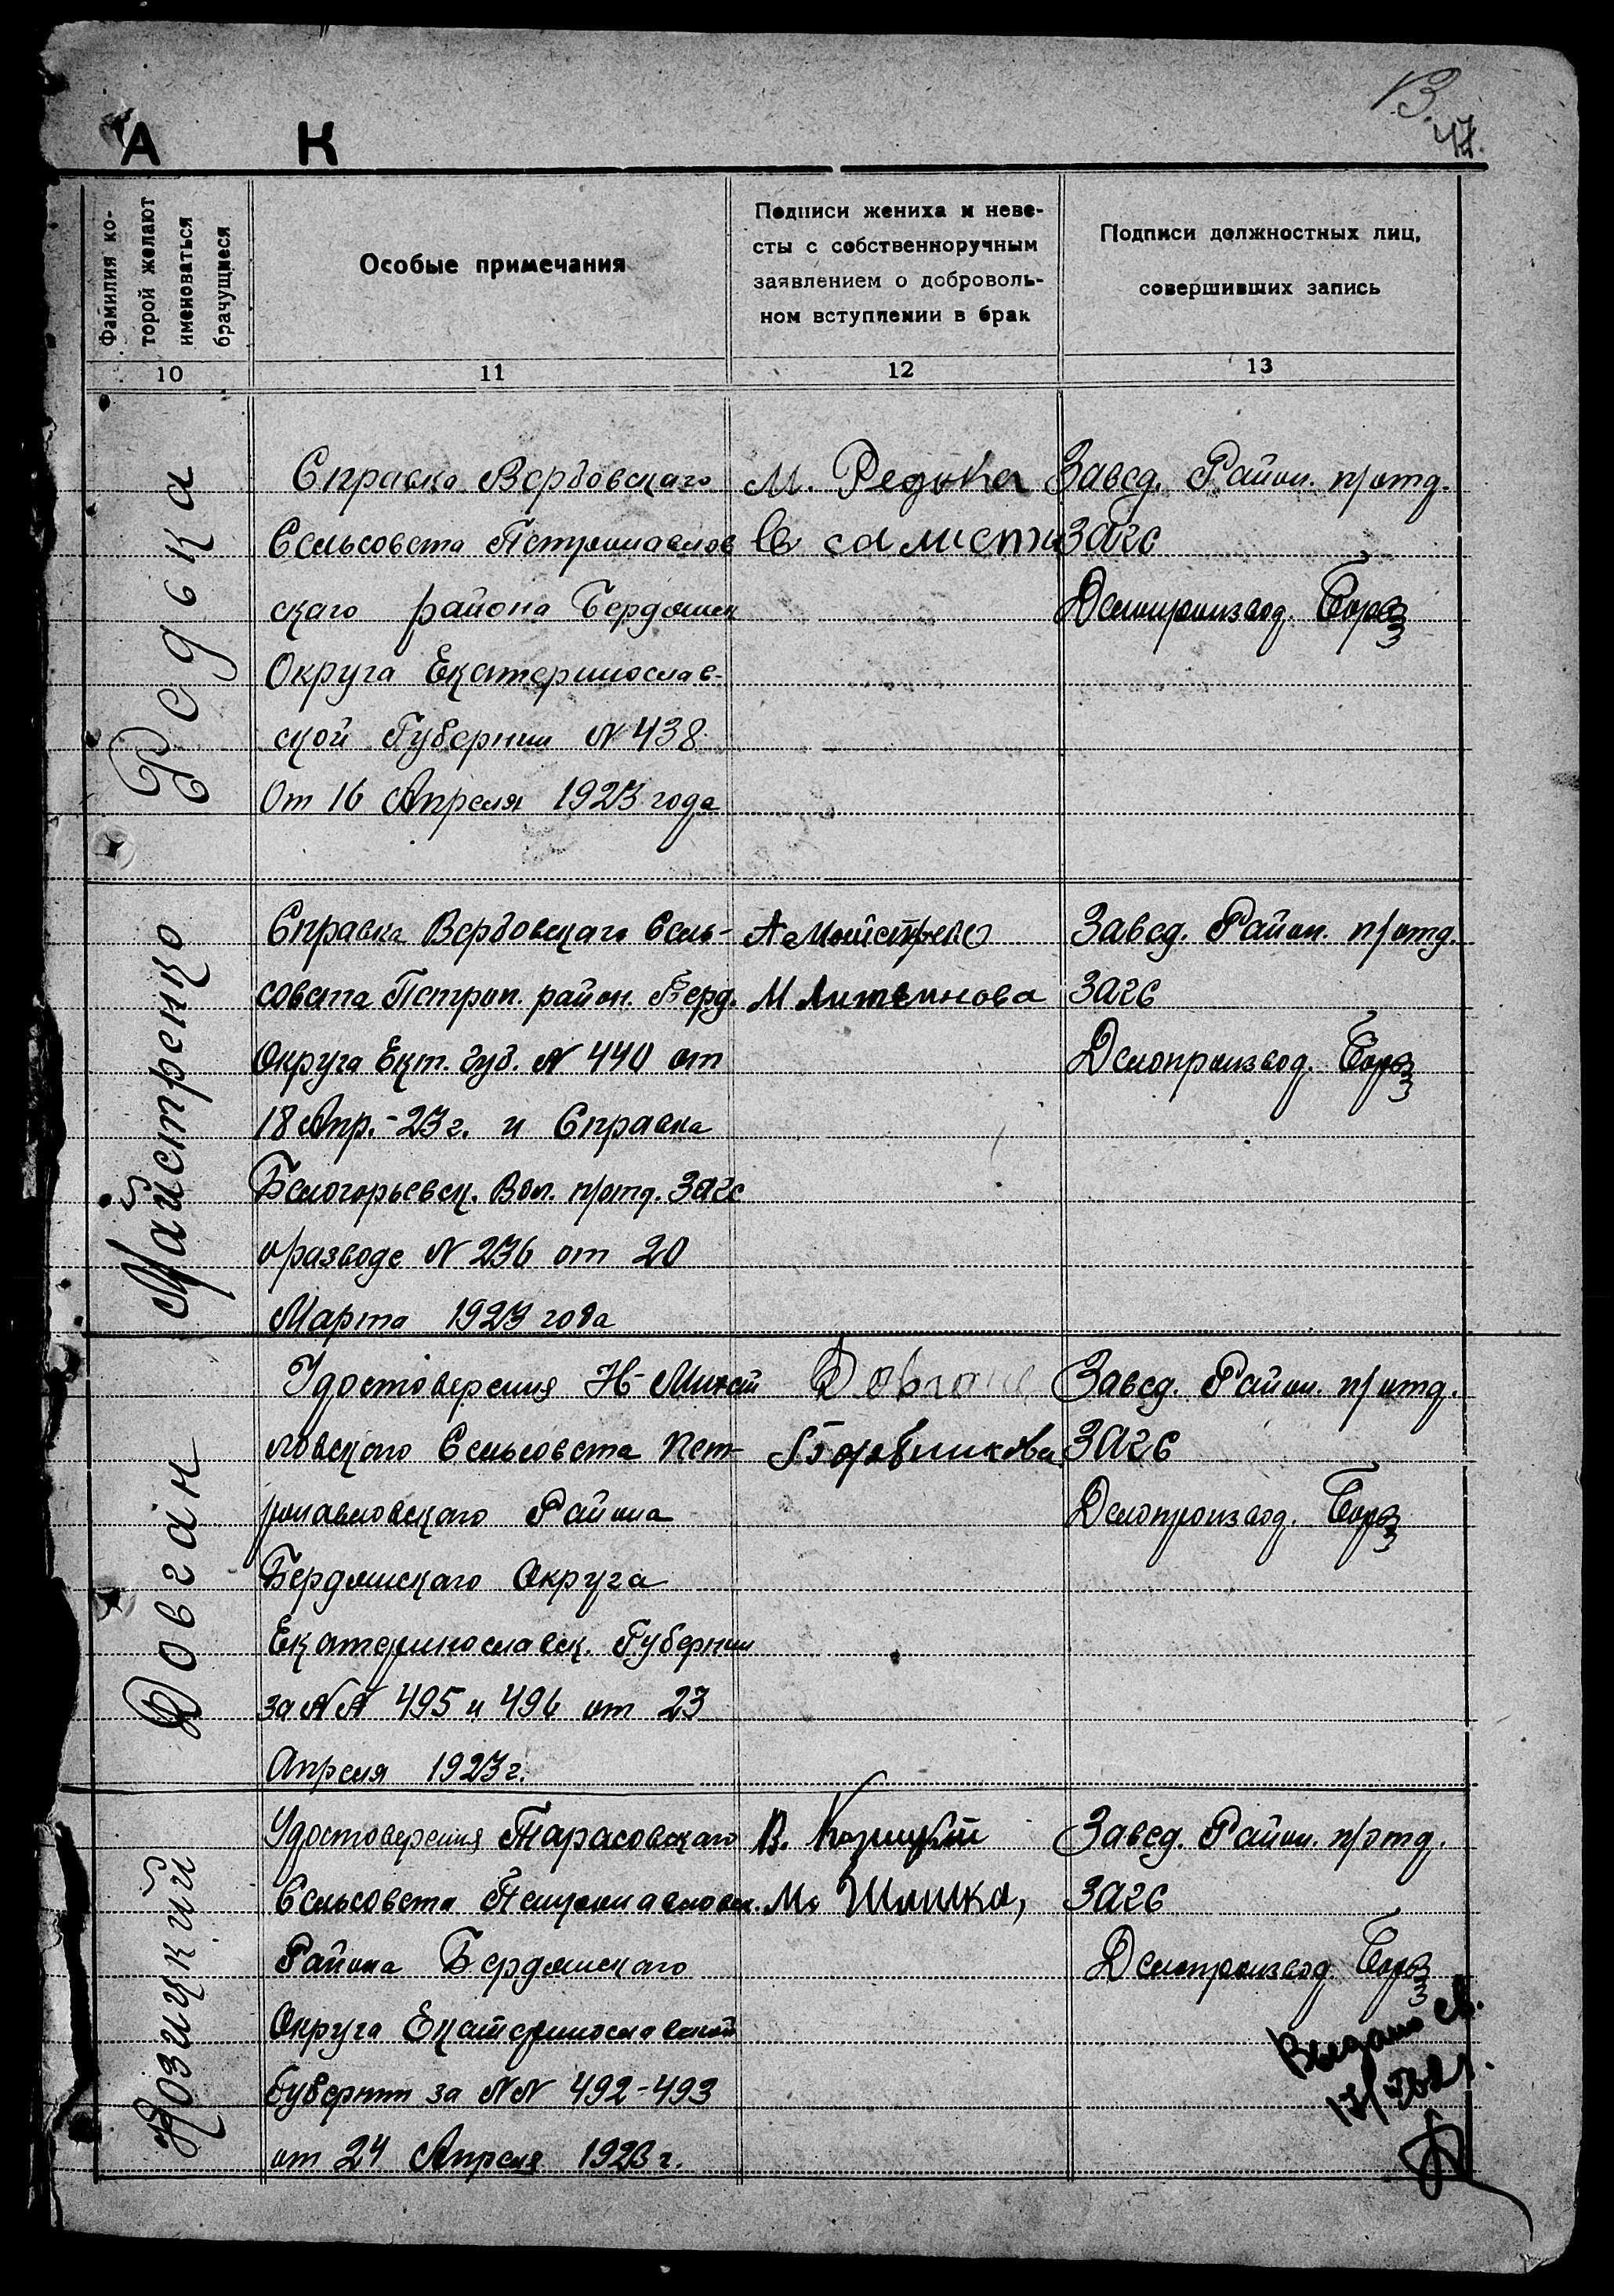 13
47.
А К
Фамилия ко-
торой желают
именоваться
брачущиеся
Особые примечания
Подписи жениха и неве-
сты с собственноручным
заявлением о доброволь-
ном вступлении в брак
Подписи должностных лиц,
совершивших запись
10
11
12
13
Редька
Справка Вербовскаго
Сельсовета Петропавлов
скаго района Бердянск
Округа Екатеринослав-
ской Губернии N 438
От 16 Апреля 1923 года
М. Редька
Завед. Район. п/отд.
ЗАГС
Делопроизвод.
Майстренко
Справка Вербовскаго Сель-
совета Петроп. район. Берд.
Округа Екат. Губ. N 440 от
18 Апр.-23 г. и Справка
Белогорьевск. Вол. п/отд. Загс
о разводе N 236 от 20
Марта 1923 года
М Литвинова
Завед. Район. п/отд.
ЗАГС
Делопроизвод.
Довган
Удостоверения Н-Михай
ловскаго Сельсовета Пет-
ропавловскаго Района
Бердянскаго Округа
Екатеринославск. Губернии
за NN 495 и 496 от 23
Апреля 1923 г.
Довган
Завед. Район. п/отд.
ЗАГС
Делопроизвод.
Козицкий
Удостоверения Тарасовскаго
Сельсовета Петропавловск.
Района Бердянскаго
Округа Екатеринославской
Губернии за NN 492-493
от 24 Апреля 1923 г.
В. Козицкий
М. Шишка,
Завед. Район. п/отд.
ЗАГС
Делопроизвод.
Выдано